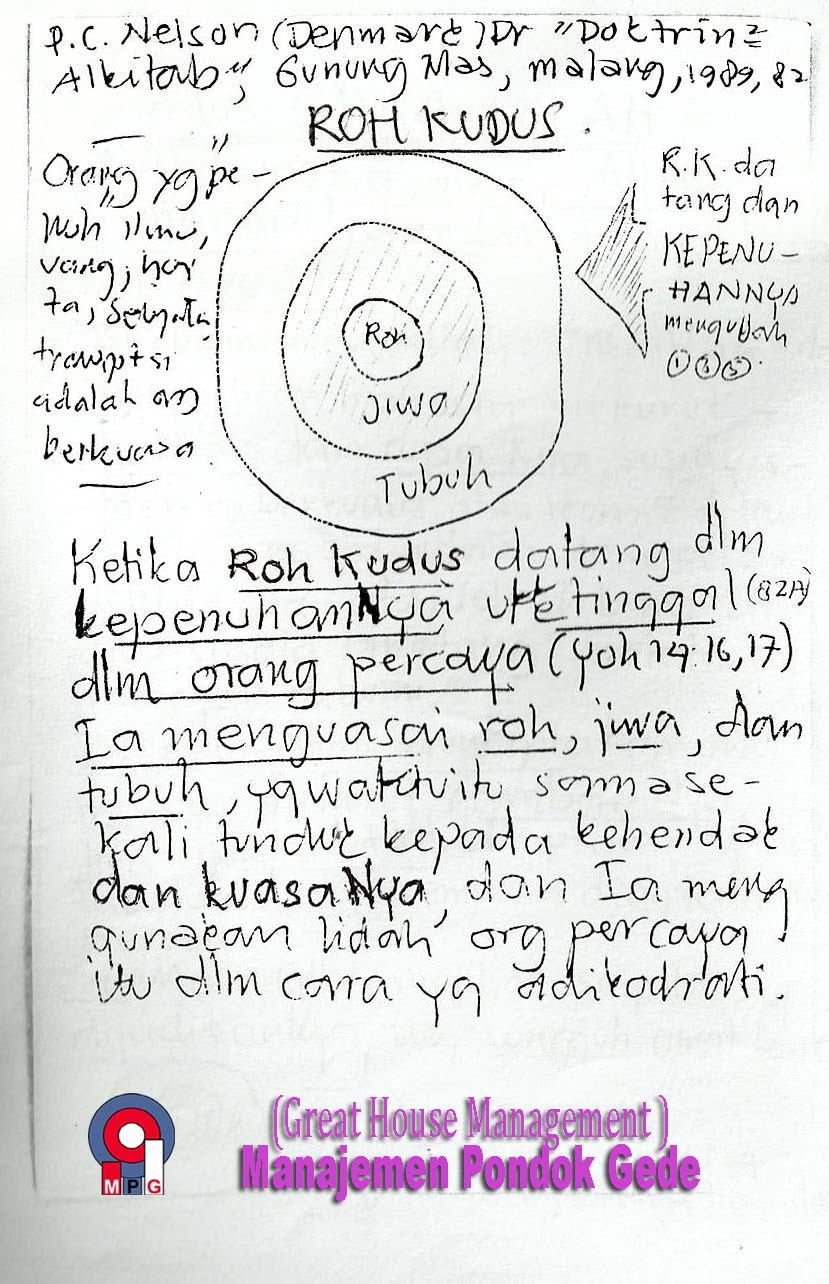 P.C. Nelson (Denmark) Dr "Doktrin2
Alkitab", Gunung Mas, Malang, 1989, 82
ROH KUDUS.
Orang yg pe-
nuh ilmu,
uang, har
ta, senjata,
adalah org
berkuasa.
R.K. da
tang dan
KEPENU-
HANNYA
mengubah
①②③.
Roh
Jiwa
Tubuh
Ketika Roh Kudus datang dlm
kepenuhanNya utk tinggal (82A)
dlm orang percaya (Yoh 14:16,17)
Ia menguasai roh, jiwa, dan
tubuh, yg waktu itu sama se-
kali tunduk kepada kehendak
dan kuasaNya, dan Ia meng
gunakan lidah org percaya
itu dlm cara yg adikodrati.
(Great House Management)
Manajemen Pondok Gede
MPG